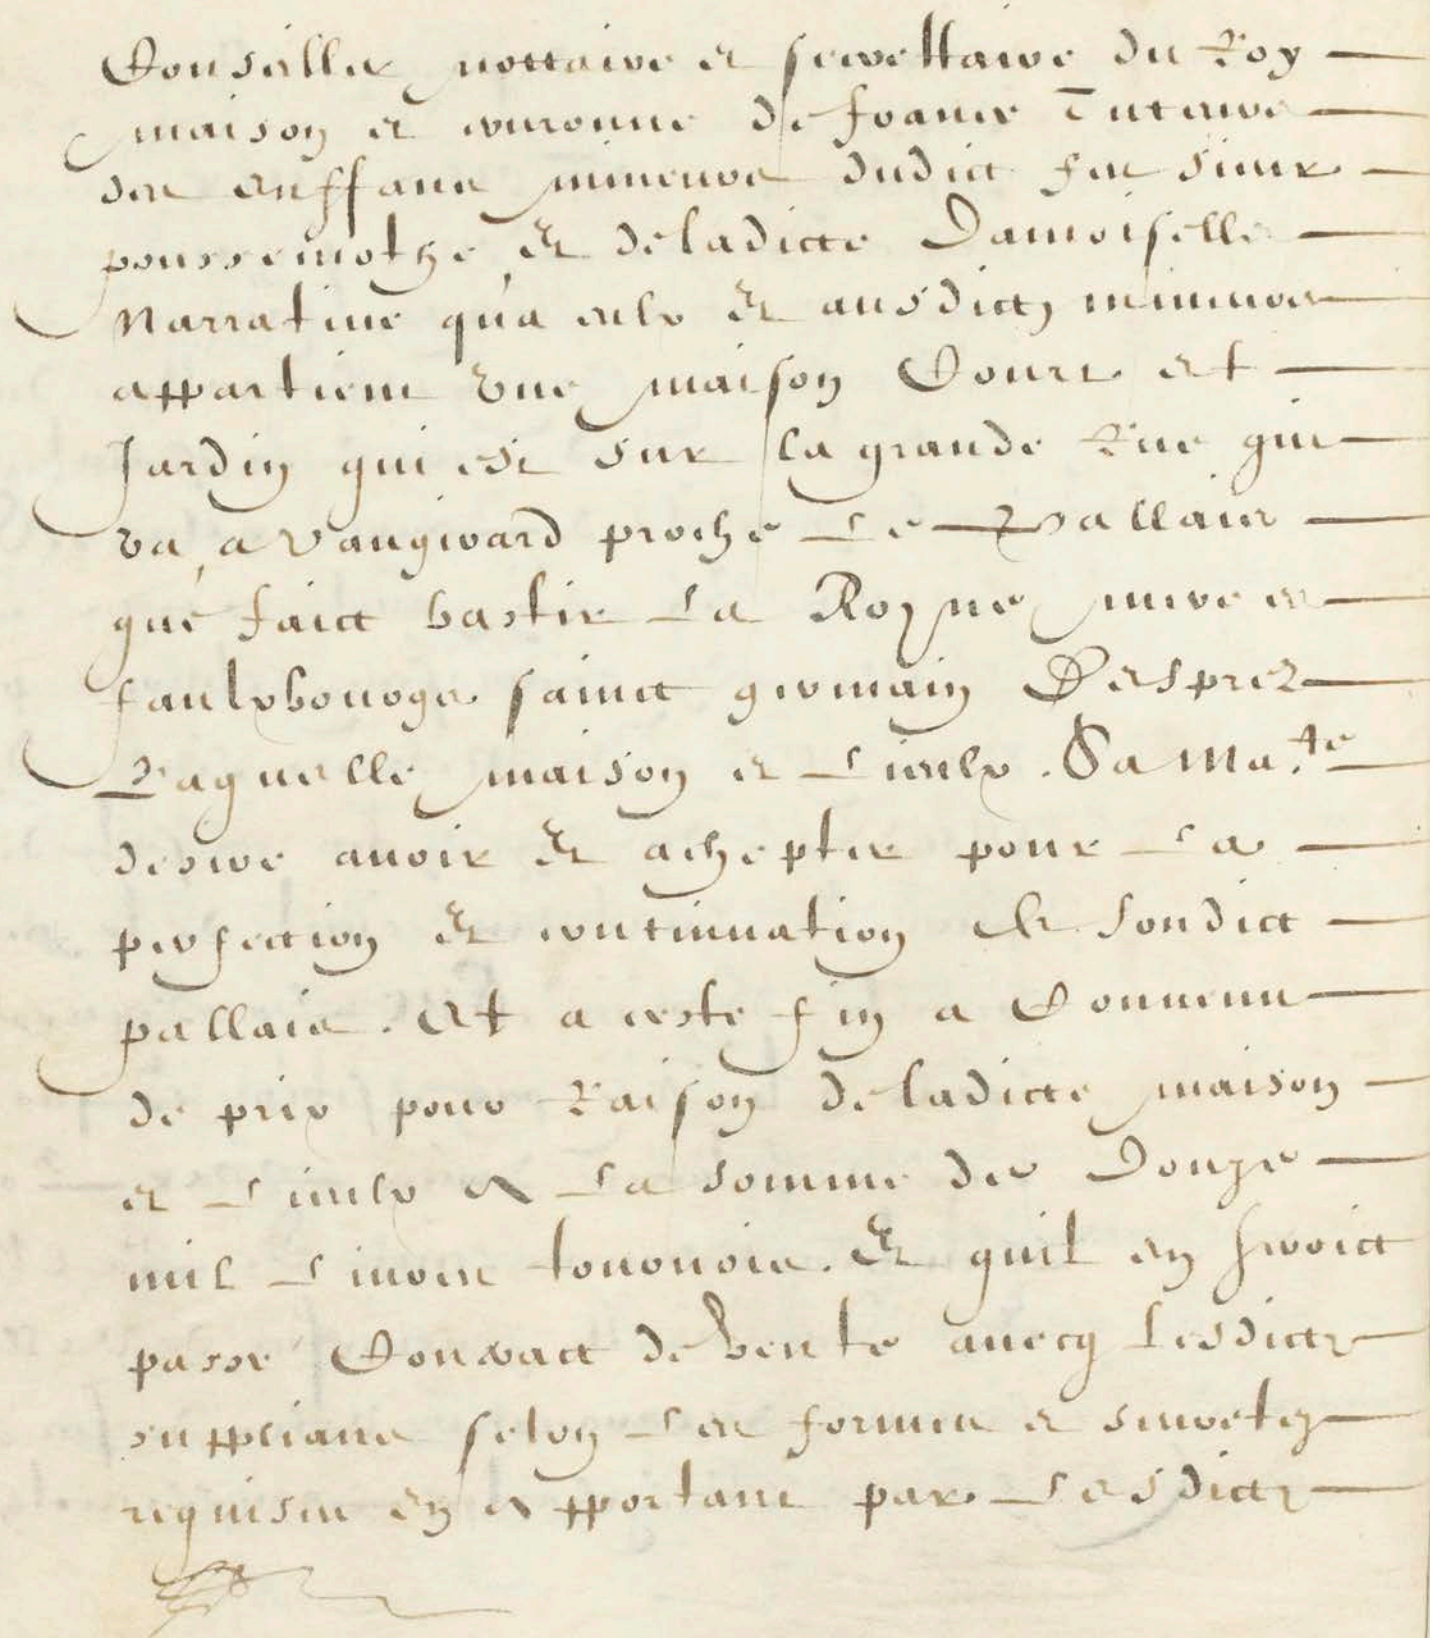 Conseiller nottaire et secrettaire du Roy
maison et couronne de france Tuteure
des enffans mineurs dudict feu sieur
poussemothe, et de ladicte Damoiselle
Narratiue qu'a eulx et ausdictz mineurs
appartient vne maison Court et
Jardin qui est sur la grande Rue qui
va a Vaugirard proche Le Pallais
que faict bastir La Royne mere es
faulxbourgs sainct germain Desprez
Laquelle maison et Lieulx. Sa Ma.te
desire auoir et achepter pour La
perfection et continuation de sondict
pallais. Et a ceste fin a Conuenu
de prix pour Raison de ladicte maison
et Lieulx a La somme de Douze
mil Liures tournois. Et quil en seroict
passé Contract de Vente auecq Lesdictz
supplians selon Les formes et seuretez
requises en apportant par Lesdictz